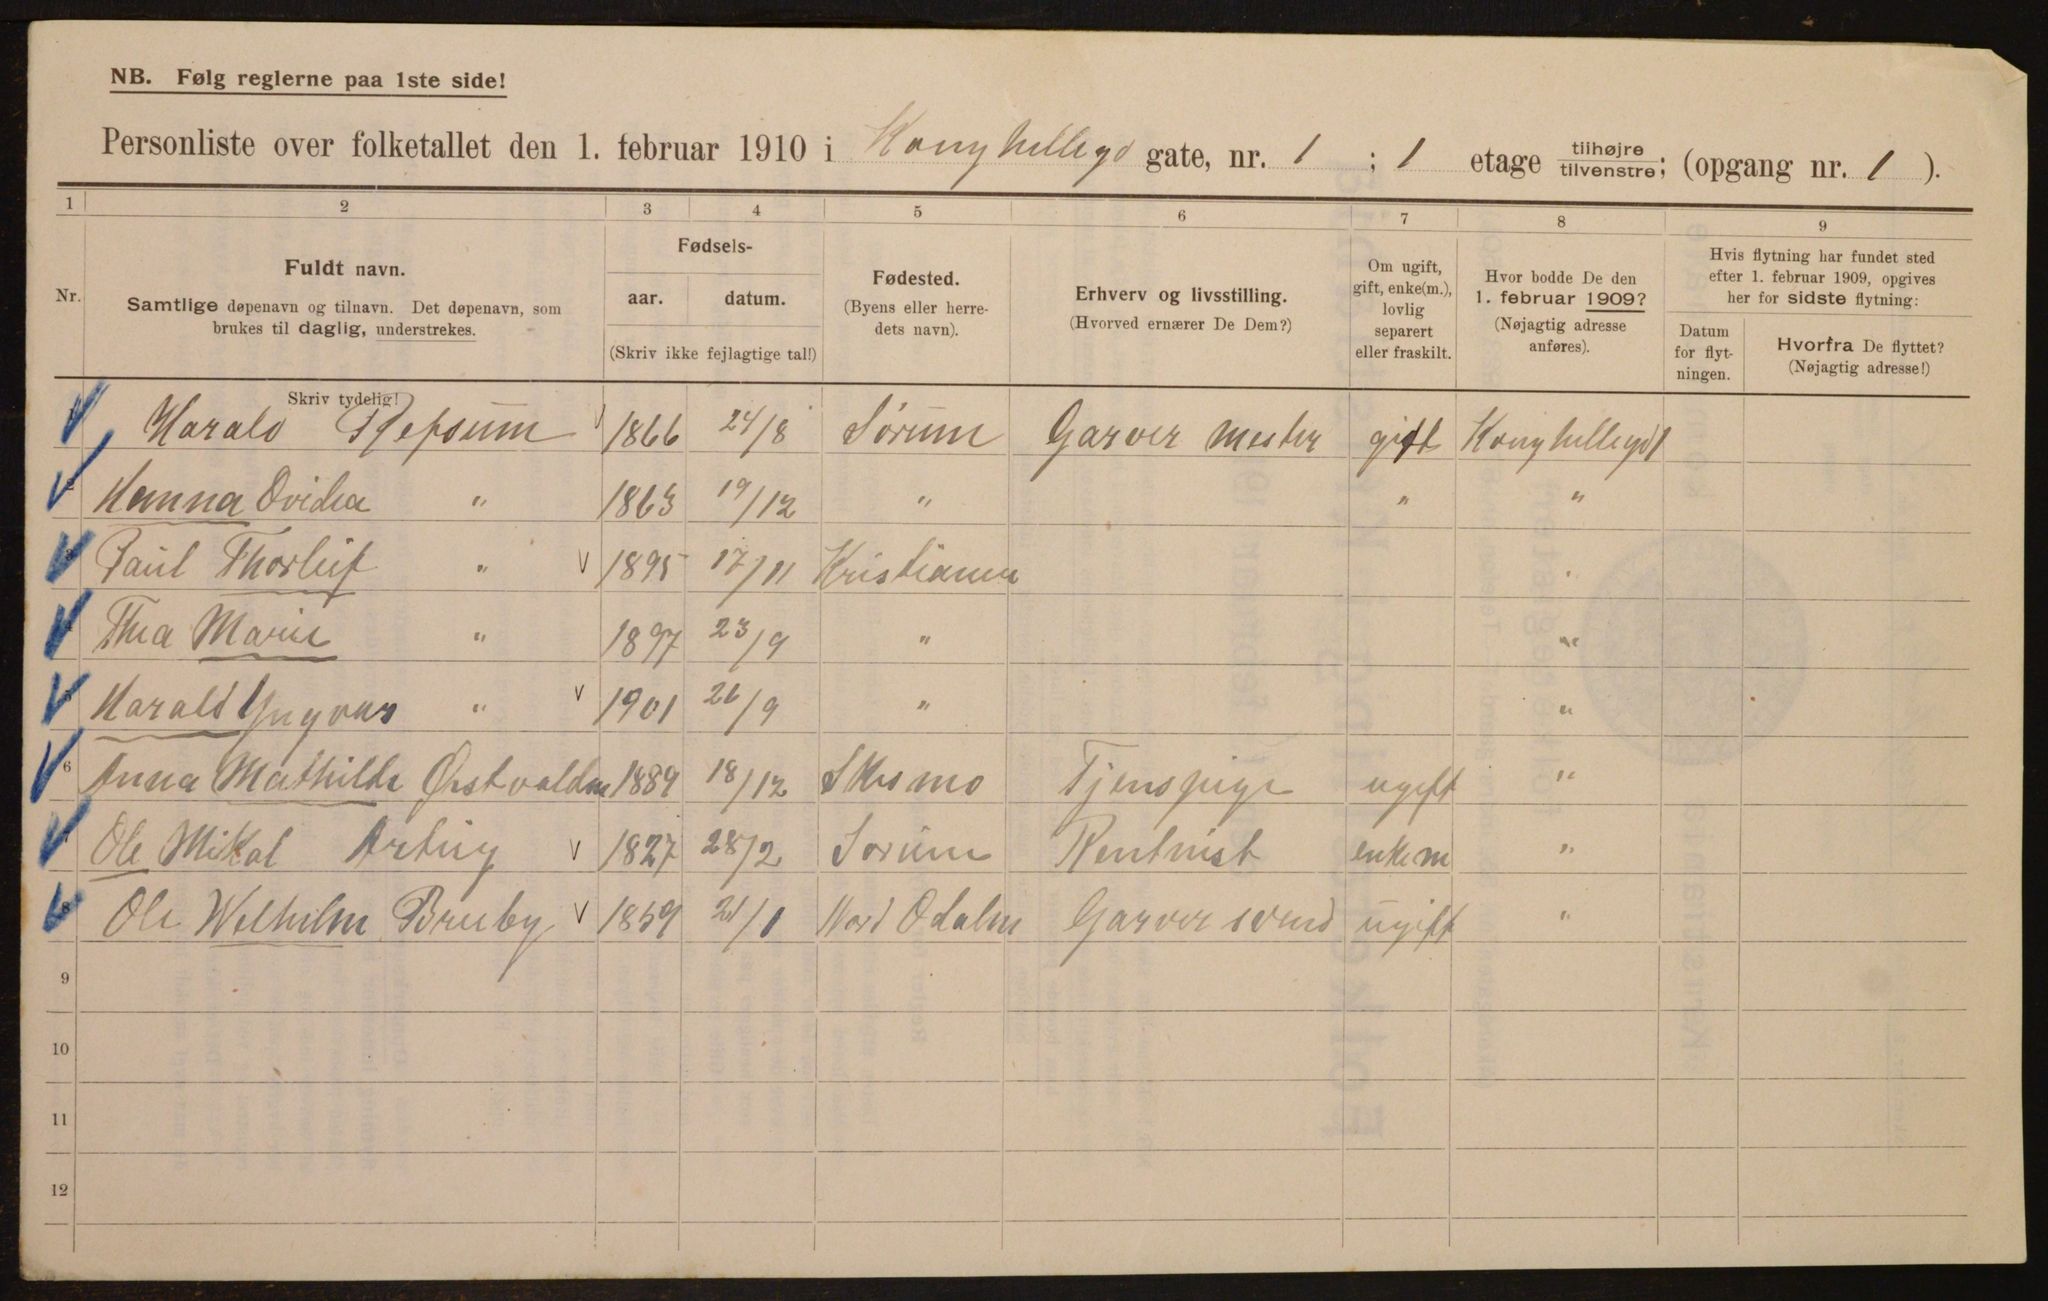 NB. Følg reglerne paa 1ste side!
Personliste over folketallet den 1. februar 1910 i Konghellegd gate, nr. 1 ; 1 etage tilhøjre tilvenstre; (opgang nr. 1 ).
1 2 3 4 5 6 7 8 9
Nr.
Fuldt navn.
Samtlige døpenavn og tilnavn. Det døpenavn, som
brukes til daglig, understrekes.
Skriv tydelig!
Fødsels-
aar. datum.
(Skriv ikke fejlagtige tal!)
Fødested.
(Byens eller herre-
dets navn).
Erhverv og livsstilling.
(Hvorved ernærer De Dem?)
Om ugift,
gift, enke(m.),
lovlig
separert
eller fraskilt.
Hvor bodde De den
1. februar 1909?
(Nøjagtig adresse
anføres).
Hvis flytning har fundet sted
efter 1. februar 1909, opgives
her for sidste flytning:
Datum
for flyt-
ningen.
Hvorfra De flyttet?
(Nøjagtig adresse!)
1 Harald Refsum 1866 24/8 Sørum Garver mester gift Konghellegd 1
2 Hanna Ovidia " 1863 19/12 " " "
3 Paul Thorleif " v 1895 17/11 Kristiania "
4 Thea Marie " 1897 23/9 " "
5 Harald Yngvar " v 1901 26/9 " "
6 Anna Mathilde 1889 18/12 Skesmo Tjenspige ugift "
7 Ole Mikal v 1827 28/2 Sorum Rentnist enkem "
8 Ole Welhelm Bruby v 1859 21/1 Nord Odalen Garver svend ugift "
9
10
11
12